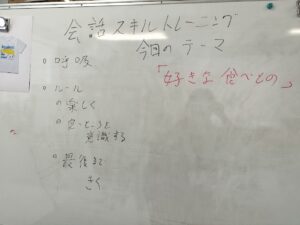 会話スキルトレーニング
今日のテーマ
「好きな食べもの」
呼吸
ルール
楽しく
意識する
最後まで
きく